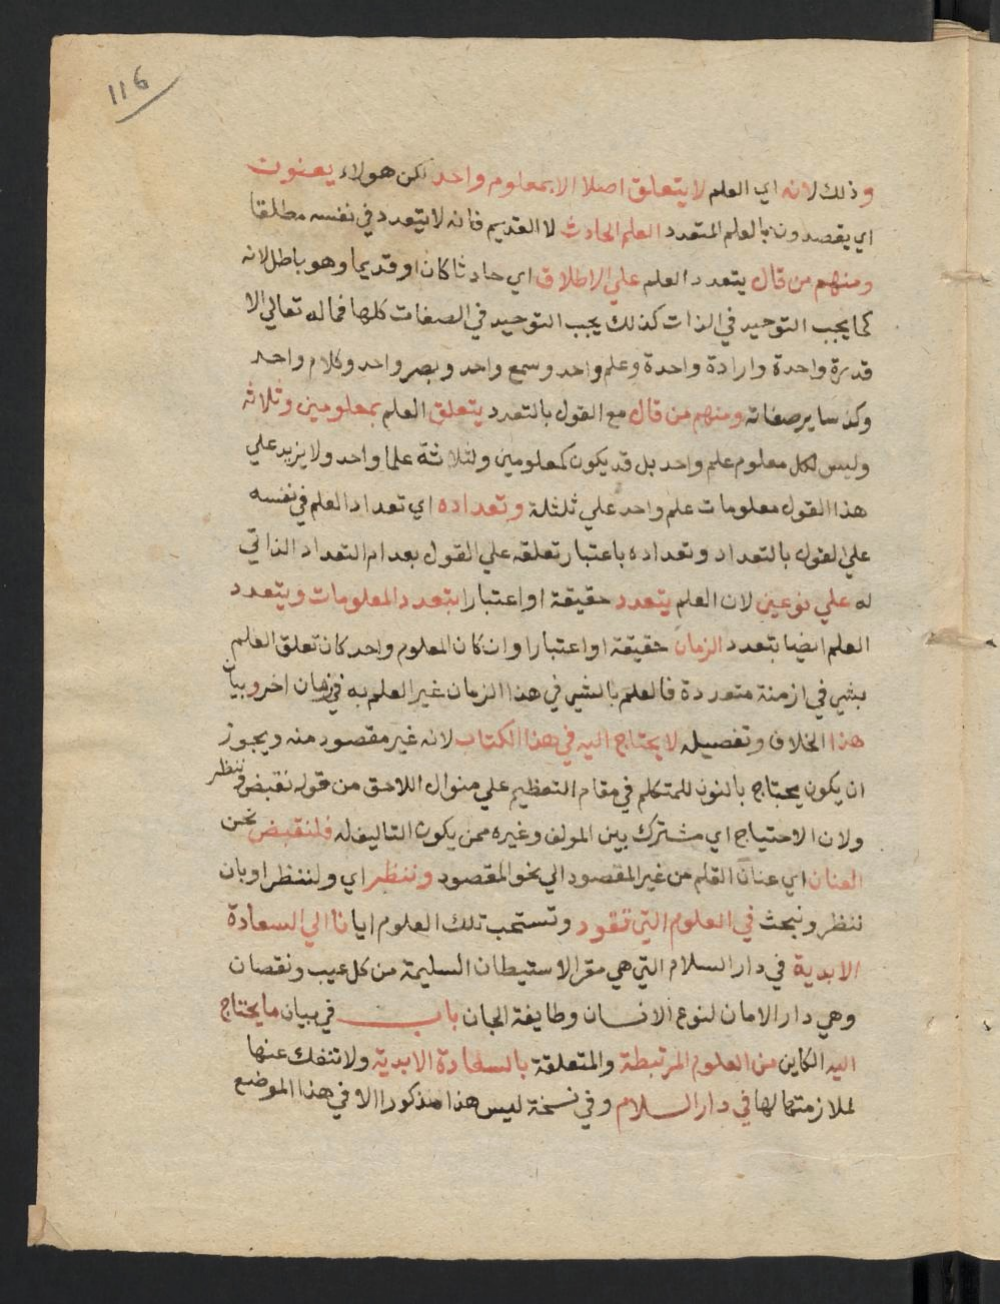 116
وذلك لانه اي العلم لا يتعلق اصلا الا بمعلوم واحد لكن هولاء يعنون
اي يقصدون بالعلم المتعدد العلم الحادث لا القديم فانه لا يتعدد في نفسه مطلقا
ومنهم من قال يتعدد العلم علي الاطلاق اي حادثا كان او قديما وهو باطل لانه
كما يجب التوحيد في الذات كذلك يجب التوحيد في الصفات كلها فما له تعالي الا
قدرة واحدة وارادة واحدة وعلم واحد وسمع واحد وبصر واحد وكلام واحد
وكذ ساير صفاته ومنهم من قال مع القول بالتعدد يتعلق العلم بمعلومين وثلاثه
وليس لكل معلوم علم واحد بل قد يكون كمعلومين ولثلاثة علما واحد ولا يزيد علي
هذا القول معلومات علم واحد علي ثلثلة وتعداده اي تعداد العلم في نفسه
علي القول بالتعداد وتعداده باعتبار تعلقه علي القول بعدام التعداد الذاتي
له علي نوعين لان العلم يتعدد حقيقة او اعتبارا بتعدد المعلومات ويتعدد
العلم ايضا بتعدد الزمان حقيقة او اعتبارا وان كان المعلوم واحد كان تعلق العلم
بشي في ازمنة متعددة فالعلم بالشي في هذا الزمان غير العلم به في زمان اخر وبيان
هذا الخلاف وتفصيله لا يحتاج اليه في هذا الكتاب لانه غير مقصود منه ويجوز
ان يكون يحتاج بالنون للمتكلم في مقام التعظيم علي منوال اللاحق من قوله نقبض وننظر
ولان الاحتياج اي مشترك بين المولف وغيره ممن يكون التاليف له فلنقبض نحن
العنان اي عنان القلم من غير المقصود الي نحو المقصود وننظر اي ولننظر اوبان
ننظر ونبحث في العلوم التي تقود وتستحب تلك العلوم ايانا الي السعادة
الابدية في دار السلام التي هي مقر الاستيطان السليمة من كل عيب ونقصان
وهي دار الامان لنوع الانسان وطايفة الجان باب في بيان ما يحتاج
اليه الكاين من العلوم المرتبطة والمتعلقة بالسعادة الابدية ولا تنفك عنها
لملازمتها لها في دار السلام وفي نسخة ليس هذا مذكورا الا في هذا الموضع